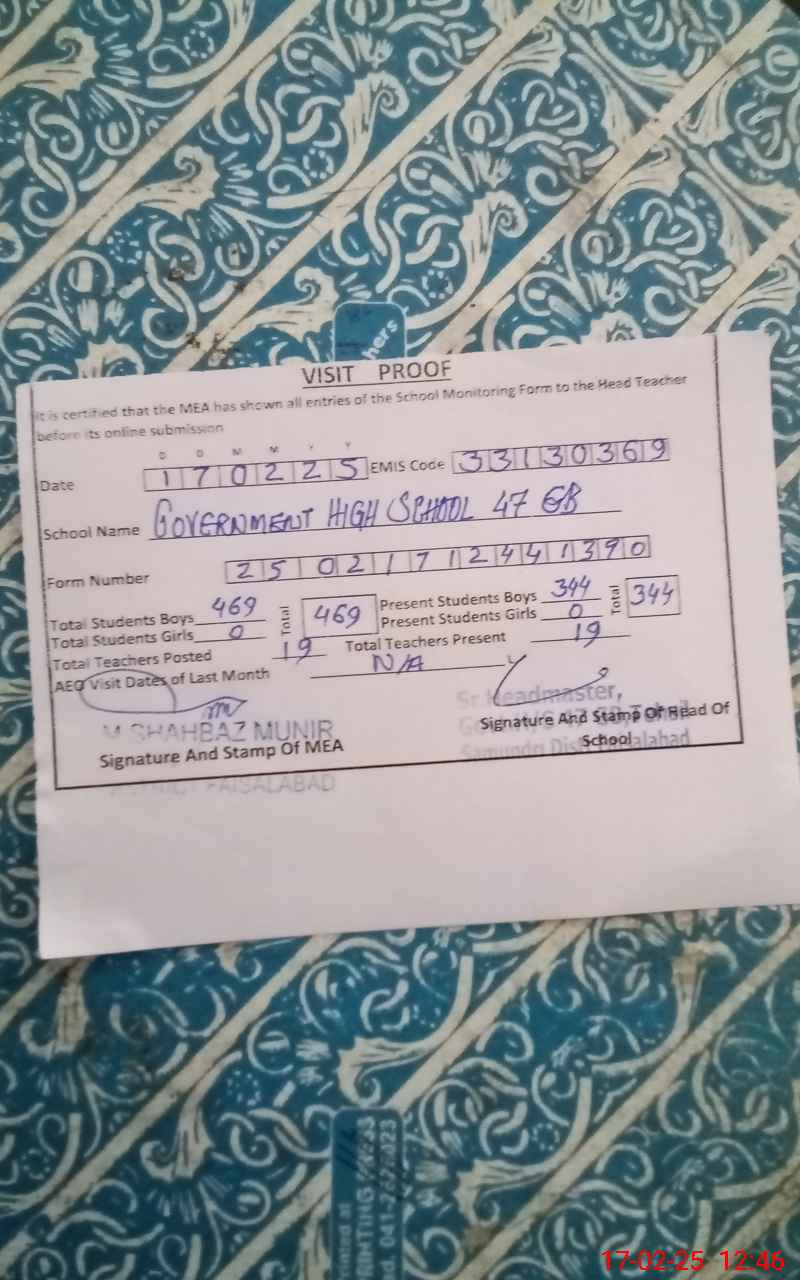 hers
VISIT PROOF
It is certified that the MEA has shown all entries of the School Monitoring Form to the Head Teacher
before its online submission
D D M M Y Y
Date 170225 EMIS Code 33130369
School Name GOVERNMENT HIGH SCHOOL 47 GB
Form Number 25021712441390
Total Students Boys 469 Total 469 Present Students Boys 344 Total 344
Total Students Girls 0 Present Students Girls 0
Total Teachers Posted 19 Total Teachers Present 19
AEO Visit Dates of Last Month N/A
M SHAHBAZ MUNIR
Signature And Stamp Of MEA
DISTRICT FAISALABAD
Sr. Headmaster,
Signature And Stamp Of Head Of
School
Samundri
17-02-25 12:46